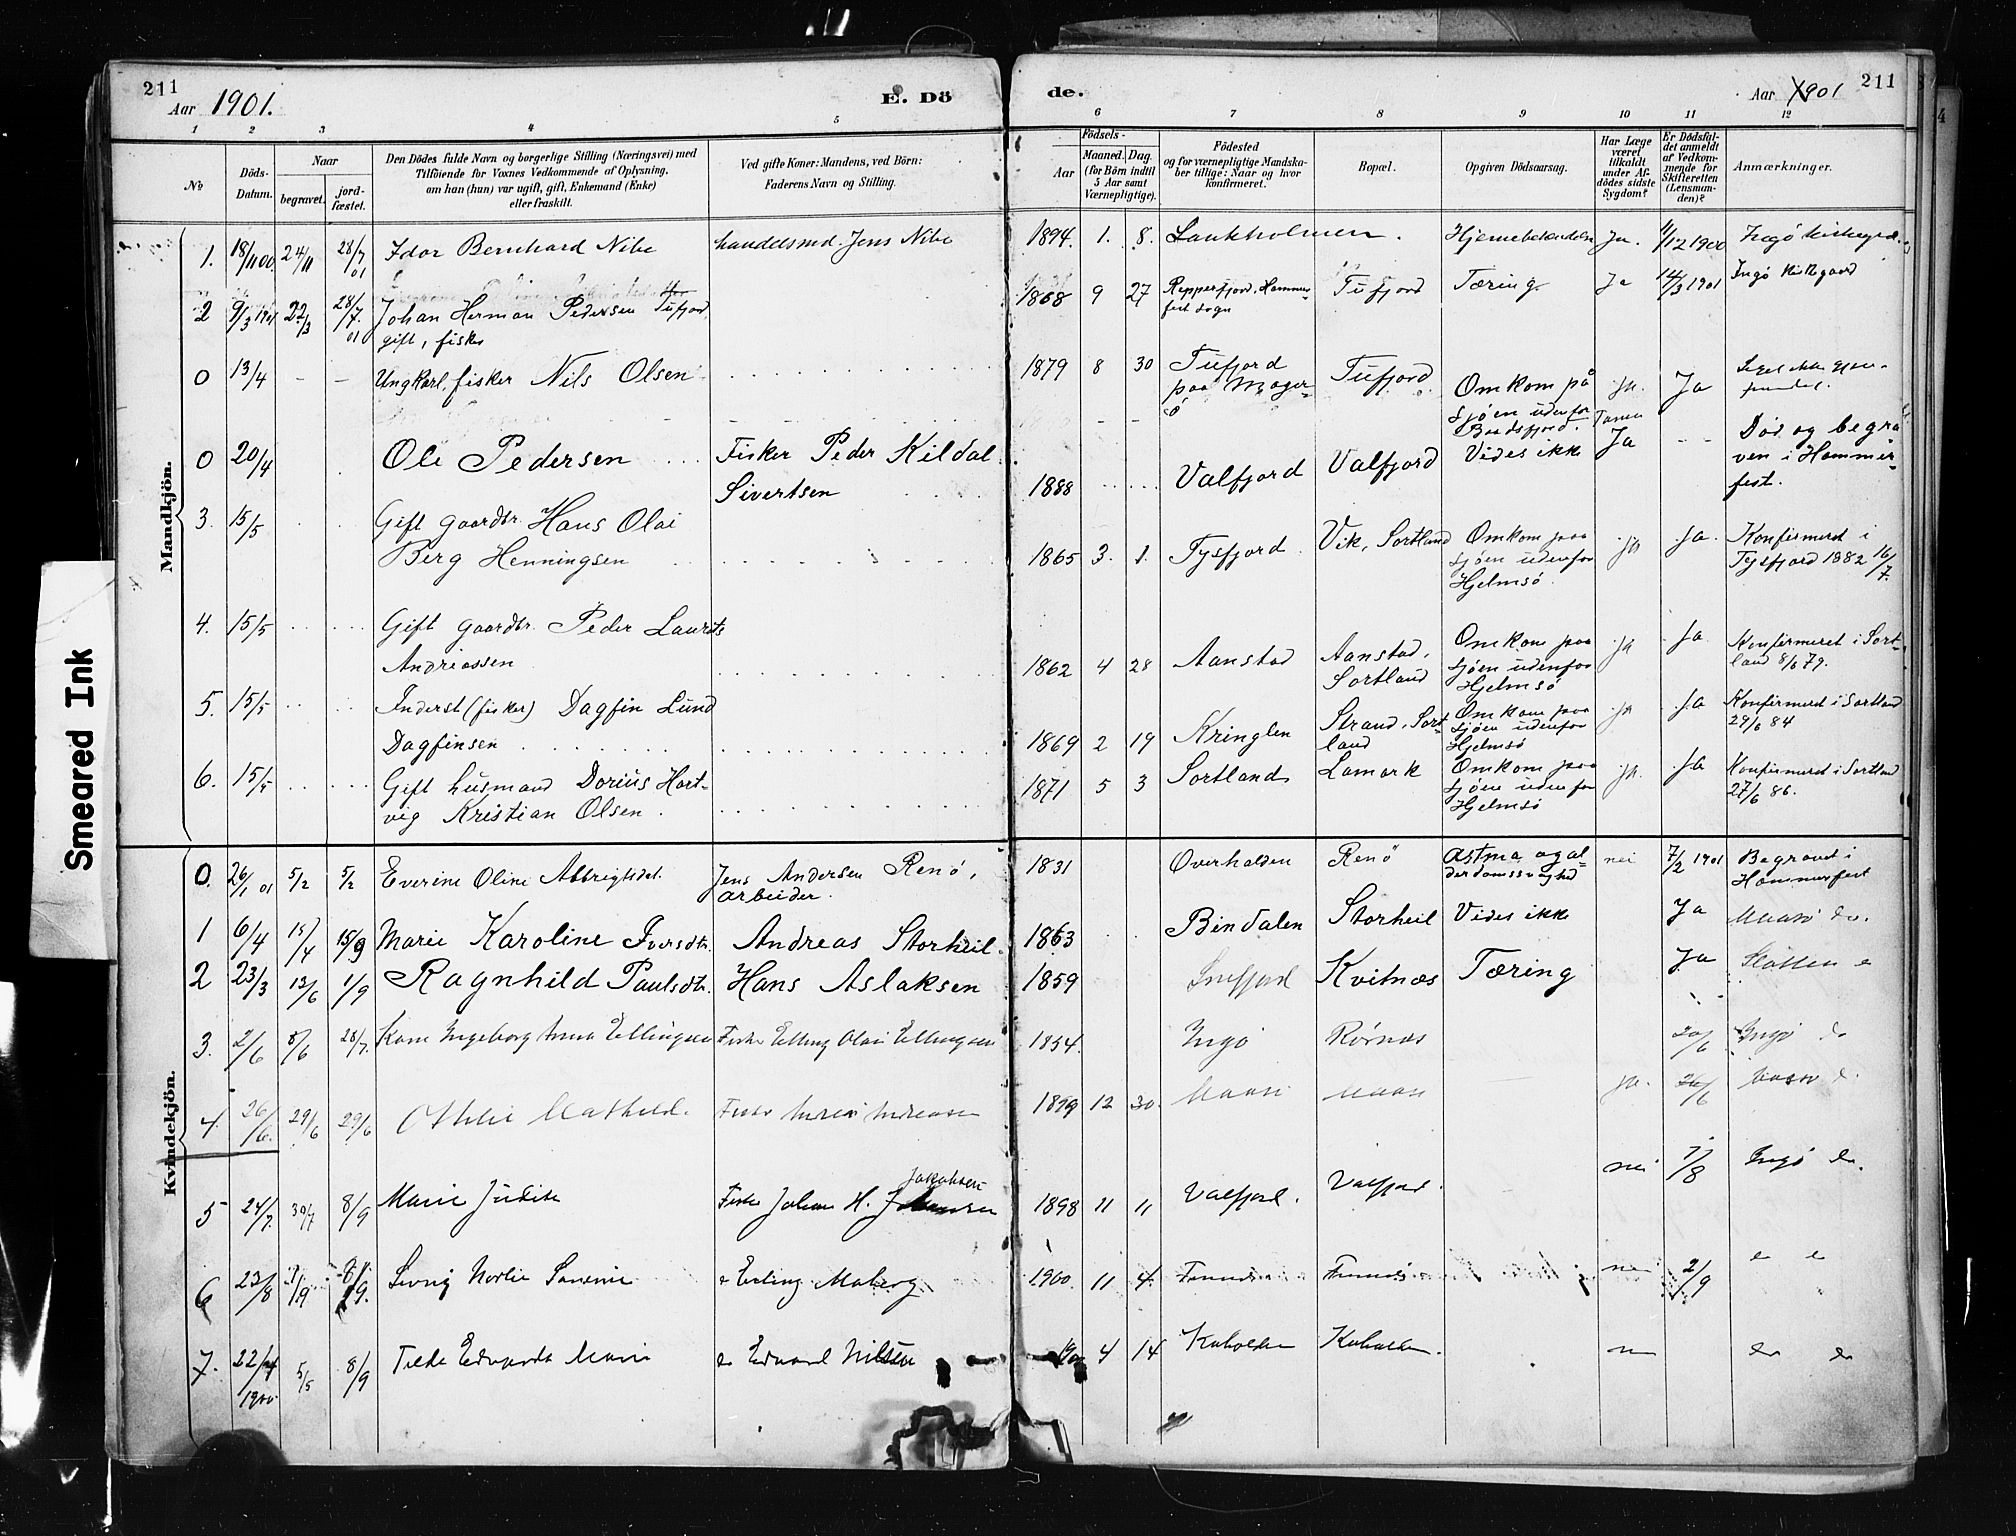 211
Aar 1901.
E. Dö
de.
Aar 1901
211
1 2 3 4 5 6 7 8 9 10 11 12
No
Döds-Datum.
Naar
begravet.
jord-fæstet.
Den Dödes fulde Navn og borgerlige Stilling (Næringsvei) med
Tilföiende for Voxnes Vedkommende af Oplysning.
om han (hun) var ugift, gift, Enkemand (Enke)
eller fraskilt.
Ved gifte Koner: Mandens, ved Börn:
Faderens Navn og Stilling.
Födsels-
Aar
Maaned. Dag.
(for Börn indtil
5 Aar samt
Værnepligtige).
Födested
og for værnepligtige Mandska-
ber tillige: Naar og hvor
konfirmeret.
Bopæl.
Opgiven Dödsaarsag.
Har Læge
været
tilkaldt
under Af-
dödes sidste
Sygdom?
Er Dödsfal-
det anmeldt
af Vedkom-
mende for
Skifteretten
(Lensman-
den)?
Anmærkninger.
Mandkjön.
1. 18/11 00. 24/11 28/7 01 Idor Bernhard Nibe handelsmd. Jens Nibe 1894. 1. 8. Lankholmen. Ja. 11/12 1900 Ingö
2 9/3 1901 22/3 28/7 01 Johan Herman Pedersen Tufjord 1868 9 27 Repperfjord, Hammer- Tufjord Tæring Ja 14/3 1901 Ingö Kirkegaard
gift, fisker fest sogn
0 13/4 - - Ungkarl, fisker Nils Olsen 1879 8 30 Tufjord Tufjord Omkom på ja. Ja
paa Mager- sjöen udenfor
ö Baadsfjord. Tanen
0 20/4 Ole Pedersen Fisker Peder Kildal 1888 Valfjord Valfjord Vides ikke Ja - - Död og begra
Sivertsen ven i Hammer-
fest.
3. 15/5 Gift gaardbr. Hans Olai 1865 3. 1. Tysfjord Vik, Sortland Omkom paa ja ja. Konfirmeret i
Berg Henningsen sjöen udenfor Tysfjord 1882 16/7.
Hjelmsö.
4. 15/5 Gift gaardbr. Peder Laurits 1862 4 28 Aanstad Aanstad, Omkom paa ja ja Konfirmeret i Sort-
Andreassen Sortland sjöen udenfor land 8/6 79.
Hjelmsö
5. 15/5 Inderst (fisker) Dagfin Lund 1869 2 19 Kringlen Strand, Sort- Omkom paa ja ja Konfirmeret i Sortland
Dagfinsen land sjöen udenfor 29/6 84
Hjelmsö
6. 15/5 Gift husmand Dorius Hart- 1871 5 3 Sortland Lamark Omkom paa ja. ja Konfirmeret i Sortland
vig Kristian Olsen. sjöen udenfor 27/6 86.
Hjelmsö
Kvindekjön.
0. 26/1 01 5/2 5/2 Everine Oline Albrigtsdat. Jens Andersen Renö, 1831 Overhalden Renö Astma og al- nei 7/2 1901 Begravet i
arbeider. derdomssvaghed Hammerfest
1 6/4 15/4 15/9 Marie Karoline Iversdtr. Andreas Storheil. 1863 Bindalen Storheil Vides ikke Ja Maasö do.
2 23/3 13/6 1/9 Ragnhild Paulsdtr. Hans Aslaksen 1859 Snefjord Kvitnæs Tæring Ja
3. 2/6 8/6 28/7. Ingeborg Anna Ellingsen Fisker Elling Olai Ellingsen 1854. Ingö 20/6 Ingö do
4 26/6. 29/6 29/6 Othilie Mathild. 1899 12 30. Maasö Maasö ja. 26/6 Maasö
5 24/7. 30/7 8/9 Marie Judith Fisker Johan H. Jakobsen 1898 11 11 Valfjord. Valfjord. nei 7/8 Ingö do.
6 23/8 1/9 8/9. Erling Moberg 1900. 11 4. nei 2/9
7. 22/4 1900 5/5 8/9 Marie do Edvard Nilsen 4 14 Kuholden Kuholden.
Smeared Ink